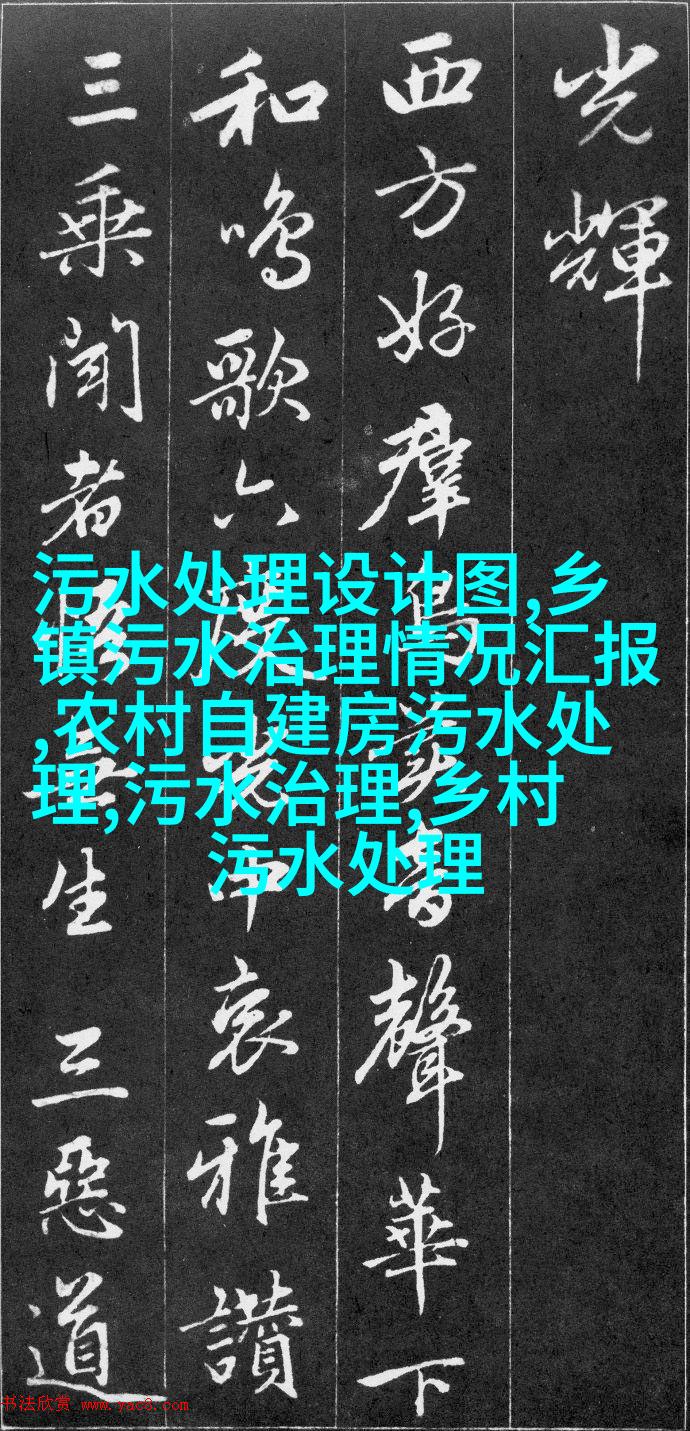 光輝
西方好群鳥音聲華下
和鳴歌六度中哀雅讚
三乘聞者無生三惡道
污水处理设计图,乡
镇污水治理情况汇报
,农村自建房污水处
理,污水治理,乡村
污水处理
书法欣赏 www.yac8.com